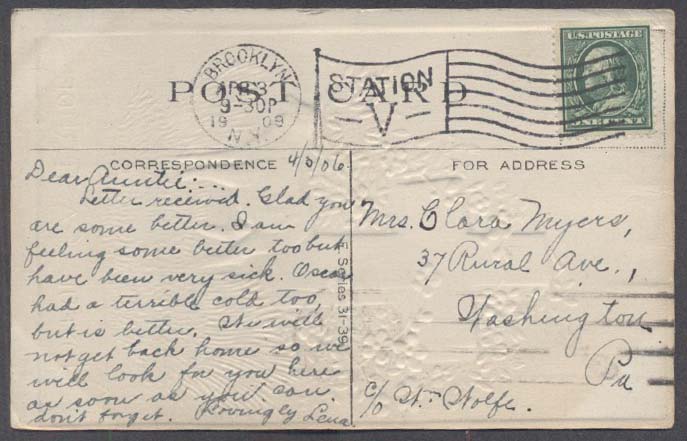 BROOKLYN
APR 3
9-30P
1909
N.Y.
STATION
V
U.S. POSTAGE
ONE CENT
POST CARD
CORRESPONDENCE
FOR ADDRESS
4/3/06.
Dear Auntie:...
Letter received. Glad you
are some better. I am
feeling some better too but
have been very sick. Oscar
had a terrible cold too,
but is better. We will
not get back home so we
will look for you here
as soon as you can
don't forget. Lovingly Lena
Series 31-39
Mrs. Clara Myers,
37 Rural Ave.,
Washington
Pa
c/o Wm Wolfe.